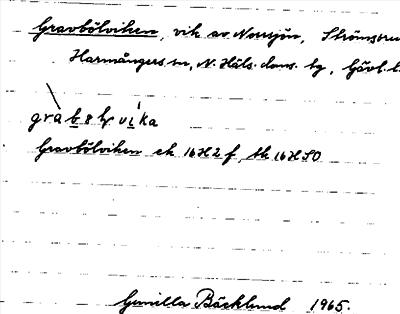 Gravbölviken, vik av Norrsjön, Strömsbru
Harmångers sn, N. Häls. doms. hg, Gävl. l.
gràbs̥l̥vi̇̀ka
Gravbölviken ek 16H2f, tk 16HSO
Gunilla Bäcklund 1965.